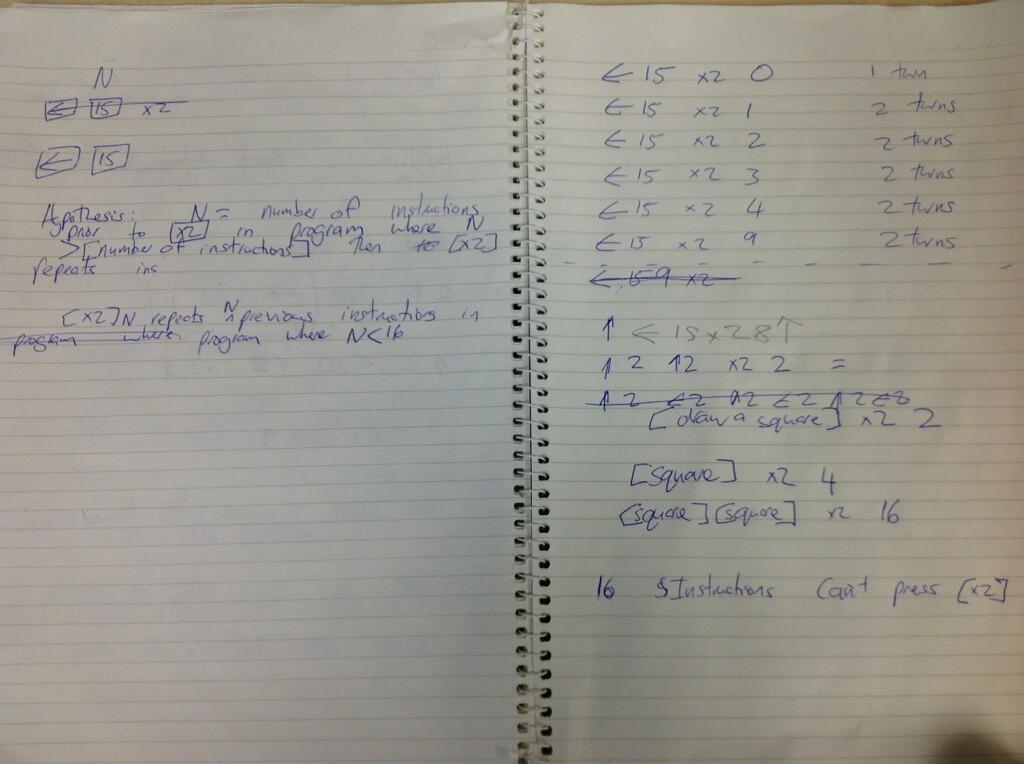 N
← 15 x2
← 15
Hypothesis: N = number of instructions
prior to [x2] in program where N
>[number of instructions] then to [x2]
repeats ins
[x2]N repeats N previous instructions in
program where program where N<16
← 15 x2 0 1 turn
← 15 x2 1 2 turns
← 15 x2 2 2 turns
← 15 x2 3 2 turns
← 15 x2 4 2 turns
← 15 x2 9 2 turns
← 15 9 x2
↑ ← 15 x2 8 ↑
↑ 2 ↑2 x2 2 =
↑ 2 ←2 ↑2 ←2 ↑2 ←8
[draw a square] x2 2
[square] x2 4
[square][square] x2 16
16 Instructions Can't press [x2]